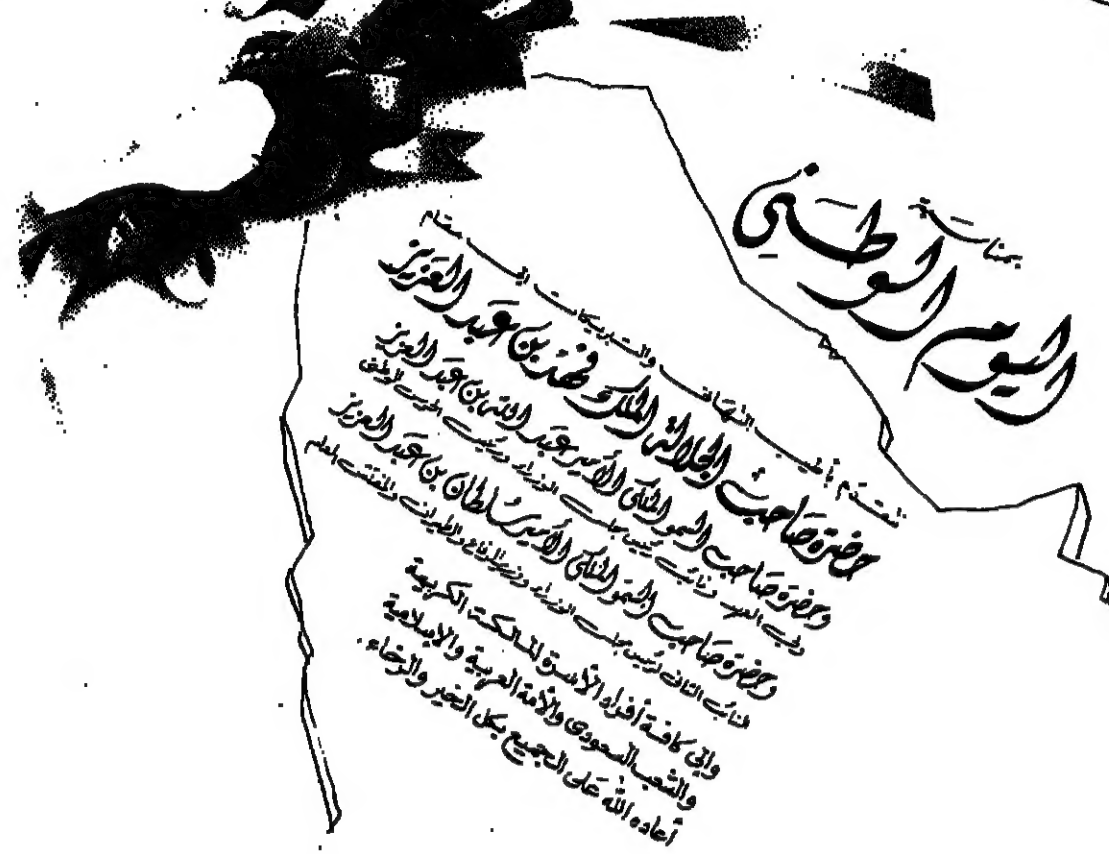 بمناسبة
اليوم الوطني
نتقدم بأطيب التهاني والتبريكات الى مقام
حضرة صاحب الجلالة الملك فهد بن عبد العزيز
وحضرة صاحب السمو الملكي الأمير عبد الله بن عبد العزيز
ولي العهد ونائب رئيس مجلس الوزراء ورئيس الحرس الوطني
وحضرة صاحب السمو الملكي الأمير سلطان بن عبد العزيز
النائب الثاني لرئيس مجلس الوزراء وزير الدفاع والطيران والمفتش العام
والى كافة أفراد الأسرة المالكة الكريمة
والشعب السعودي والأمة العربية والإسلامية
أعاده الله على الجميع بكل الخير والرخاء.